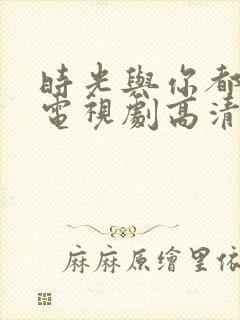 時光與你都
電視劇高清
麻麻原繪里依